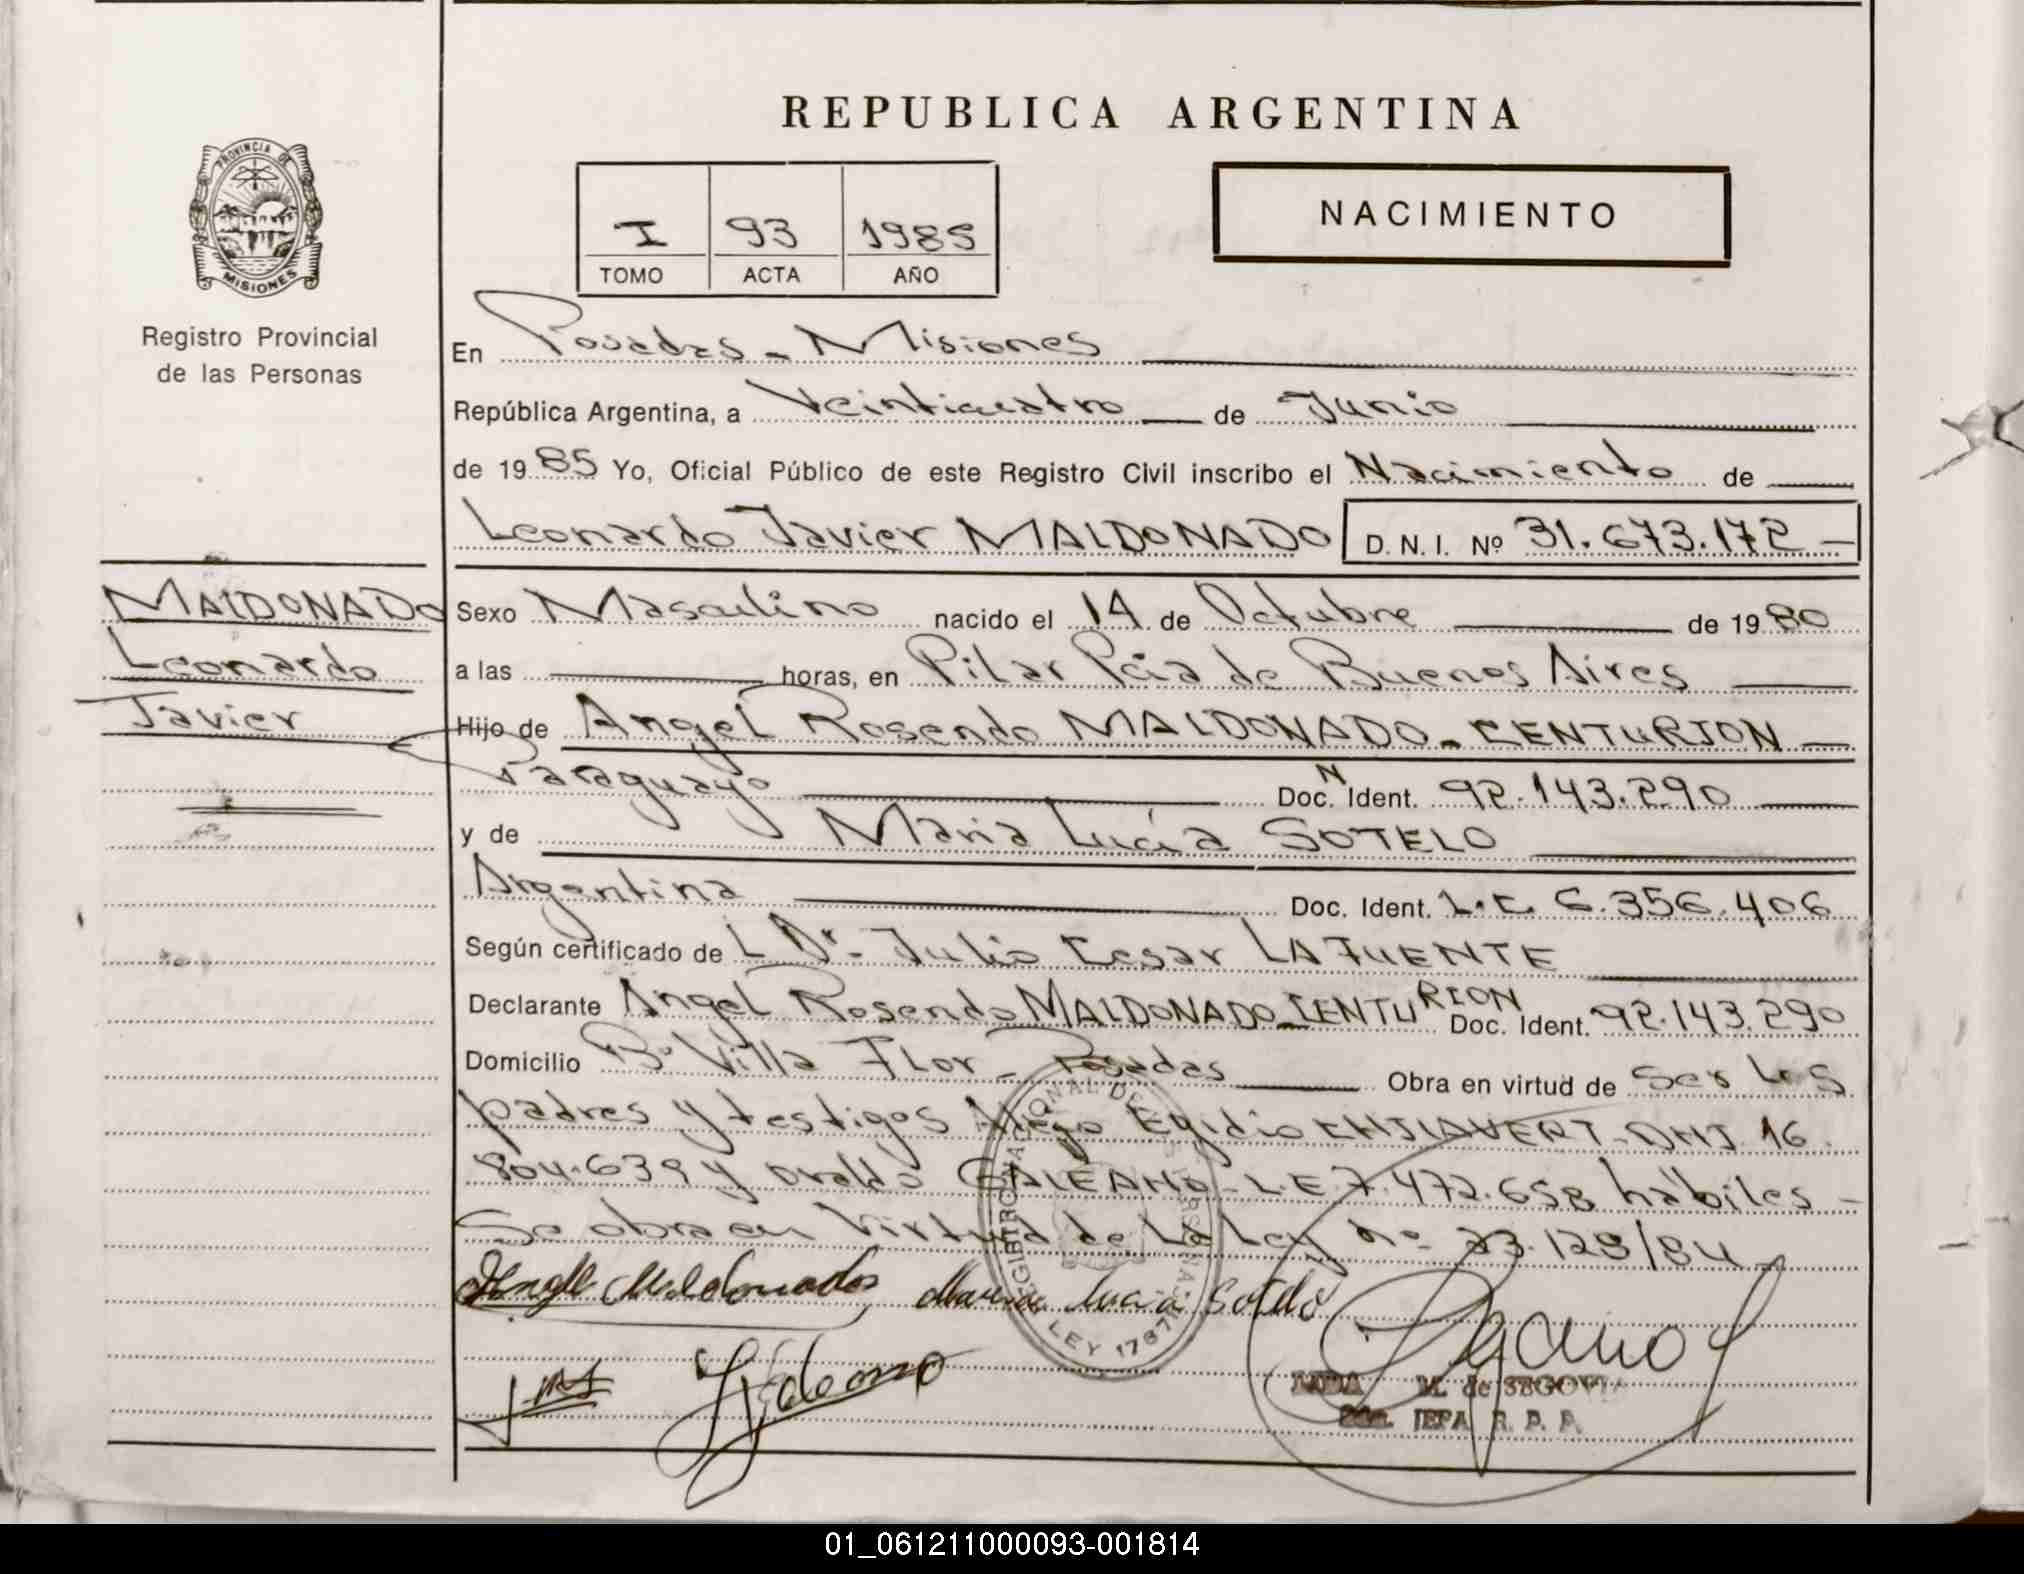 REPUBLICA ARGENTINA
PROVINCIA DE
MISIONES
Registro Provincial
de las Personas
I 93 1985
TOMO ACTA AÑO
NACIMIENTO
En Posadas - Misiones
República Argentina, a Veinticuatro de Junio
de 1985 Yo, Oficial Público de este Registro Civil inscribo el Nacimiento de
Leonardo Javier MALDONADO D. N. I. Nº 31.673.172
MALDONADO
Leonardo
Javier
Sexo Masculino nacido el 14 de Octubre de 1980
a las horas, en Pilar Pcia de Buenos Aires
Hijo de Angel Rosendo MALDONADO - CENTURION
Paraguayo Doc. N Ident. 92.143.290
y de Maria Lucía SOTELO
Argentina Doc. Ident. L.C. 6.356.406
Según certificado de L Dr. Julio Cesar LAFUENTE
Declarante Angel Rosendo MALDONADO CENTURION Doc. Ident. 92.143.290
Domicilio Bº Villa Flor - Posadas Obra en virtud de ser los
padres y testigos Egidio DNI 16
804.639 y GALEANO - L.E 7.472.658 hábiles -
Se obra en Virtud de la Ley nº 23.128/84
Angel Maldonado, Maria Lucia Sotelo
REGISTRO NACIONAL DE LAS PERSONAS
LEY
M. de SEGOVIA
R. P. P.
01_061211000093-001814